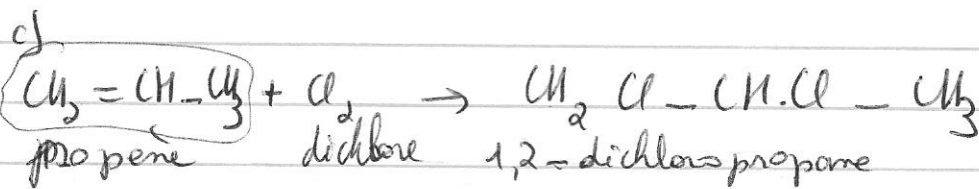 c)
CH₂ = CH - CH₃ + Cl₂ → CH₂ Cl - CH.Cl - CH₃
propène dichlore 1,2-dichloropropane